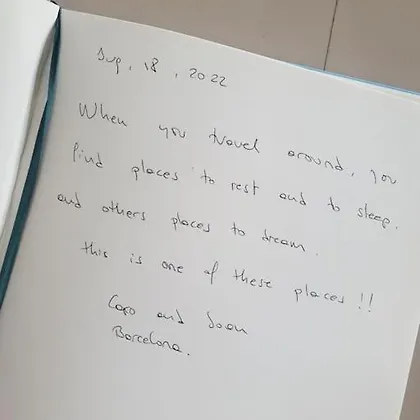 Aug, 18, 2022
When you travel around, you
find places to rest and to sleep.
and others places to dream.
this is one of these places!!
and Joan
Barcelona.